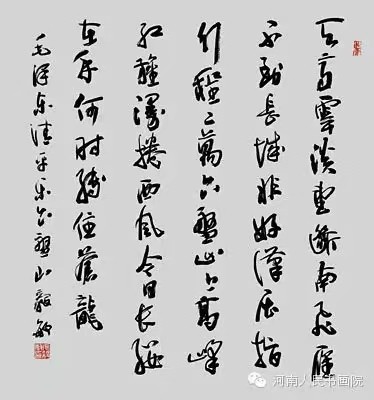 天高雲淡望斷南飛雁
不到長城非好漢屈指
行程二萬六盤山上高峰
紅旗漫捲西風今日長纓
在手何時縛住蒼龍
毛澤東清平樂六盤山毅敏
河南人民书画院